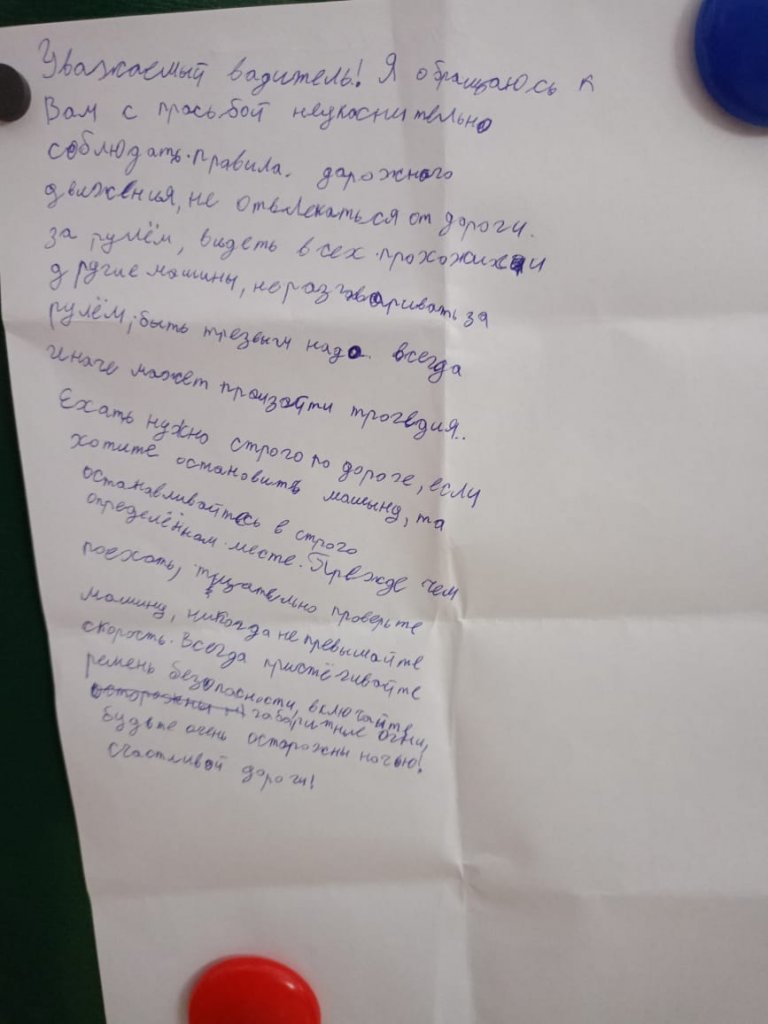 Уважаемый вадитель! Я обращаюсь к
Вам с прасьбой неукоснительно
соблюдать правила. дарожного
движения, не отвлекаться от дороги.
за рулём, видеть всех прохожих и
другие машины, не разговаривать за
рулём, быть трезвым надо. всегда
иначе может произайти трогедия..
Ехать нужно строго по дороге, если
хотите остановить машину, та
останавливайтесь в строго
определённам месте. Прежде чем
поехать, тщательно проверьте
машину, никогда не превышайте
скорость. Всегда пристёгивайте
ремень безопасности, включайте
осторожны габаритные огни,
будьте очень осторожны ночью!
счастливой дороги!